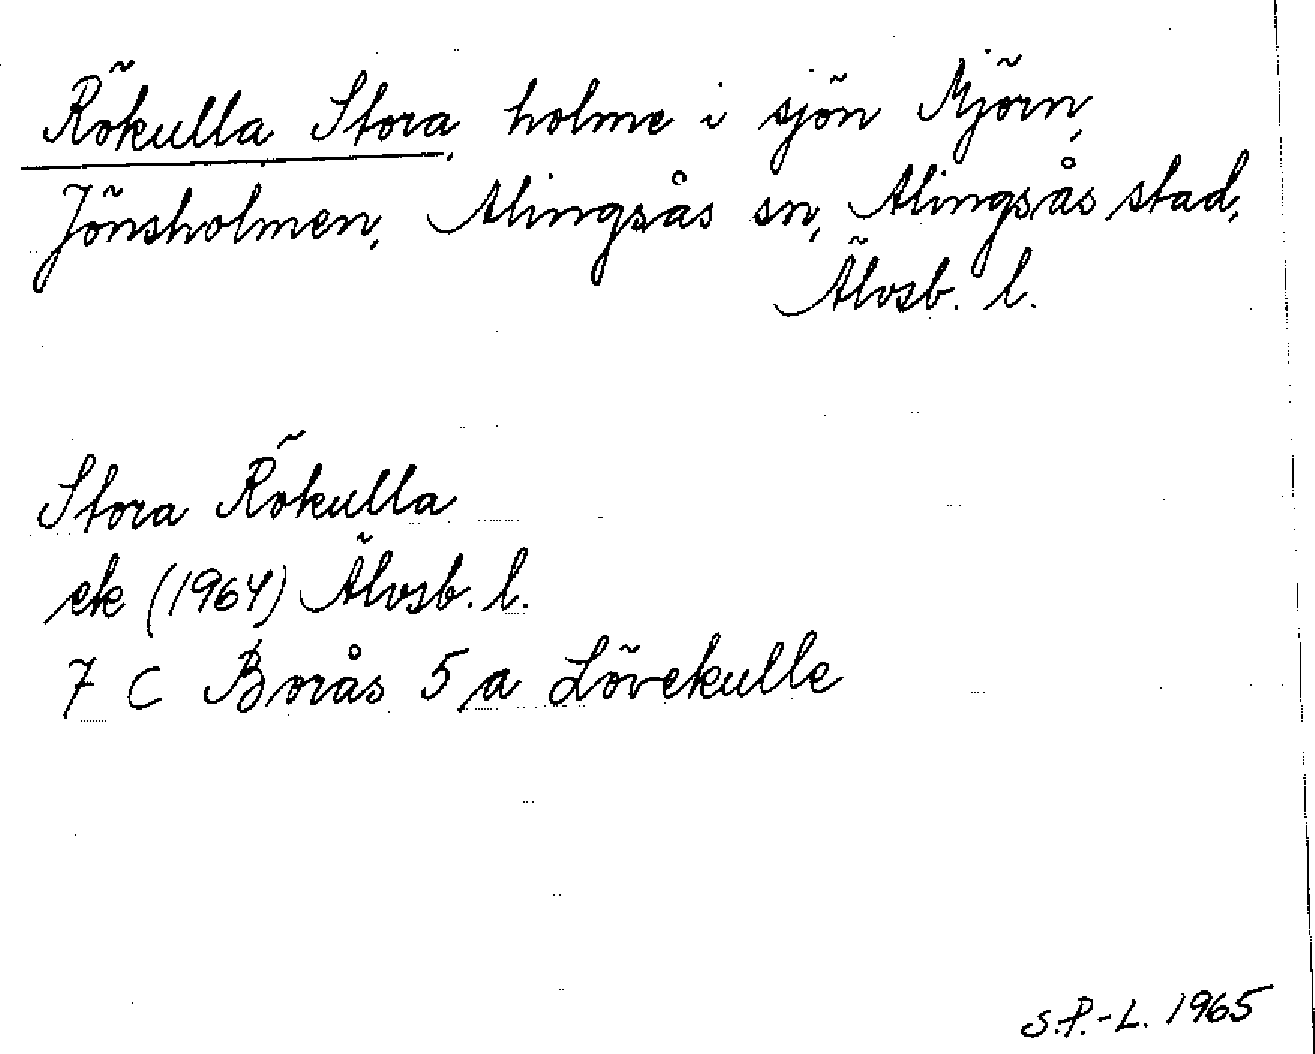 Rökulla Stora, holme i sjön Mjörn,
Jönsholmen, Alingsås sn, Alingsås stad,
Älvsb. l.
Stora Rökulla
ek (1964) Älvsb. l.
7 C Borås 5 a Lövekulle
S.P.-L. 1965